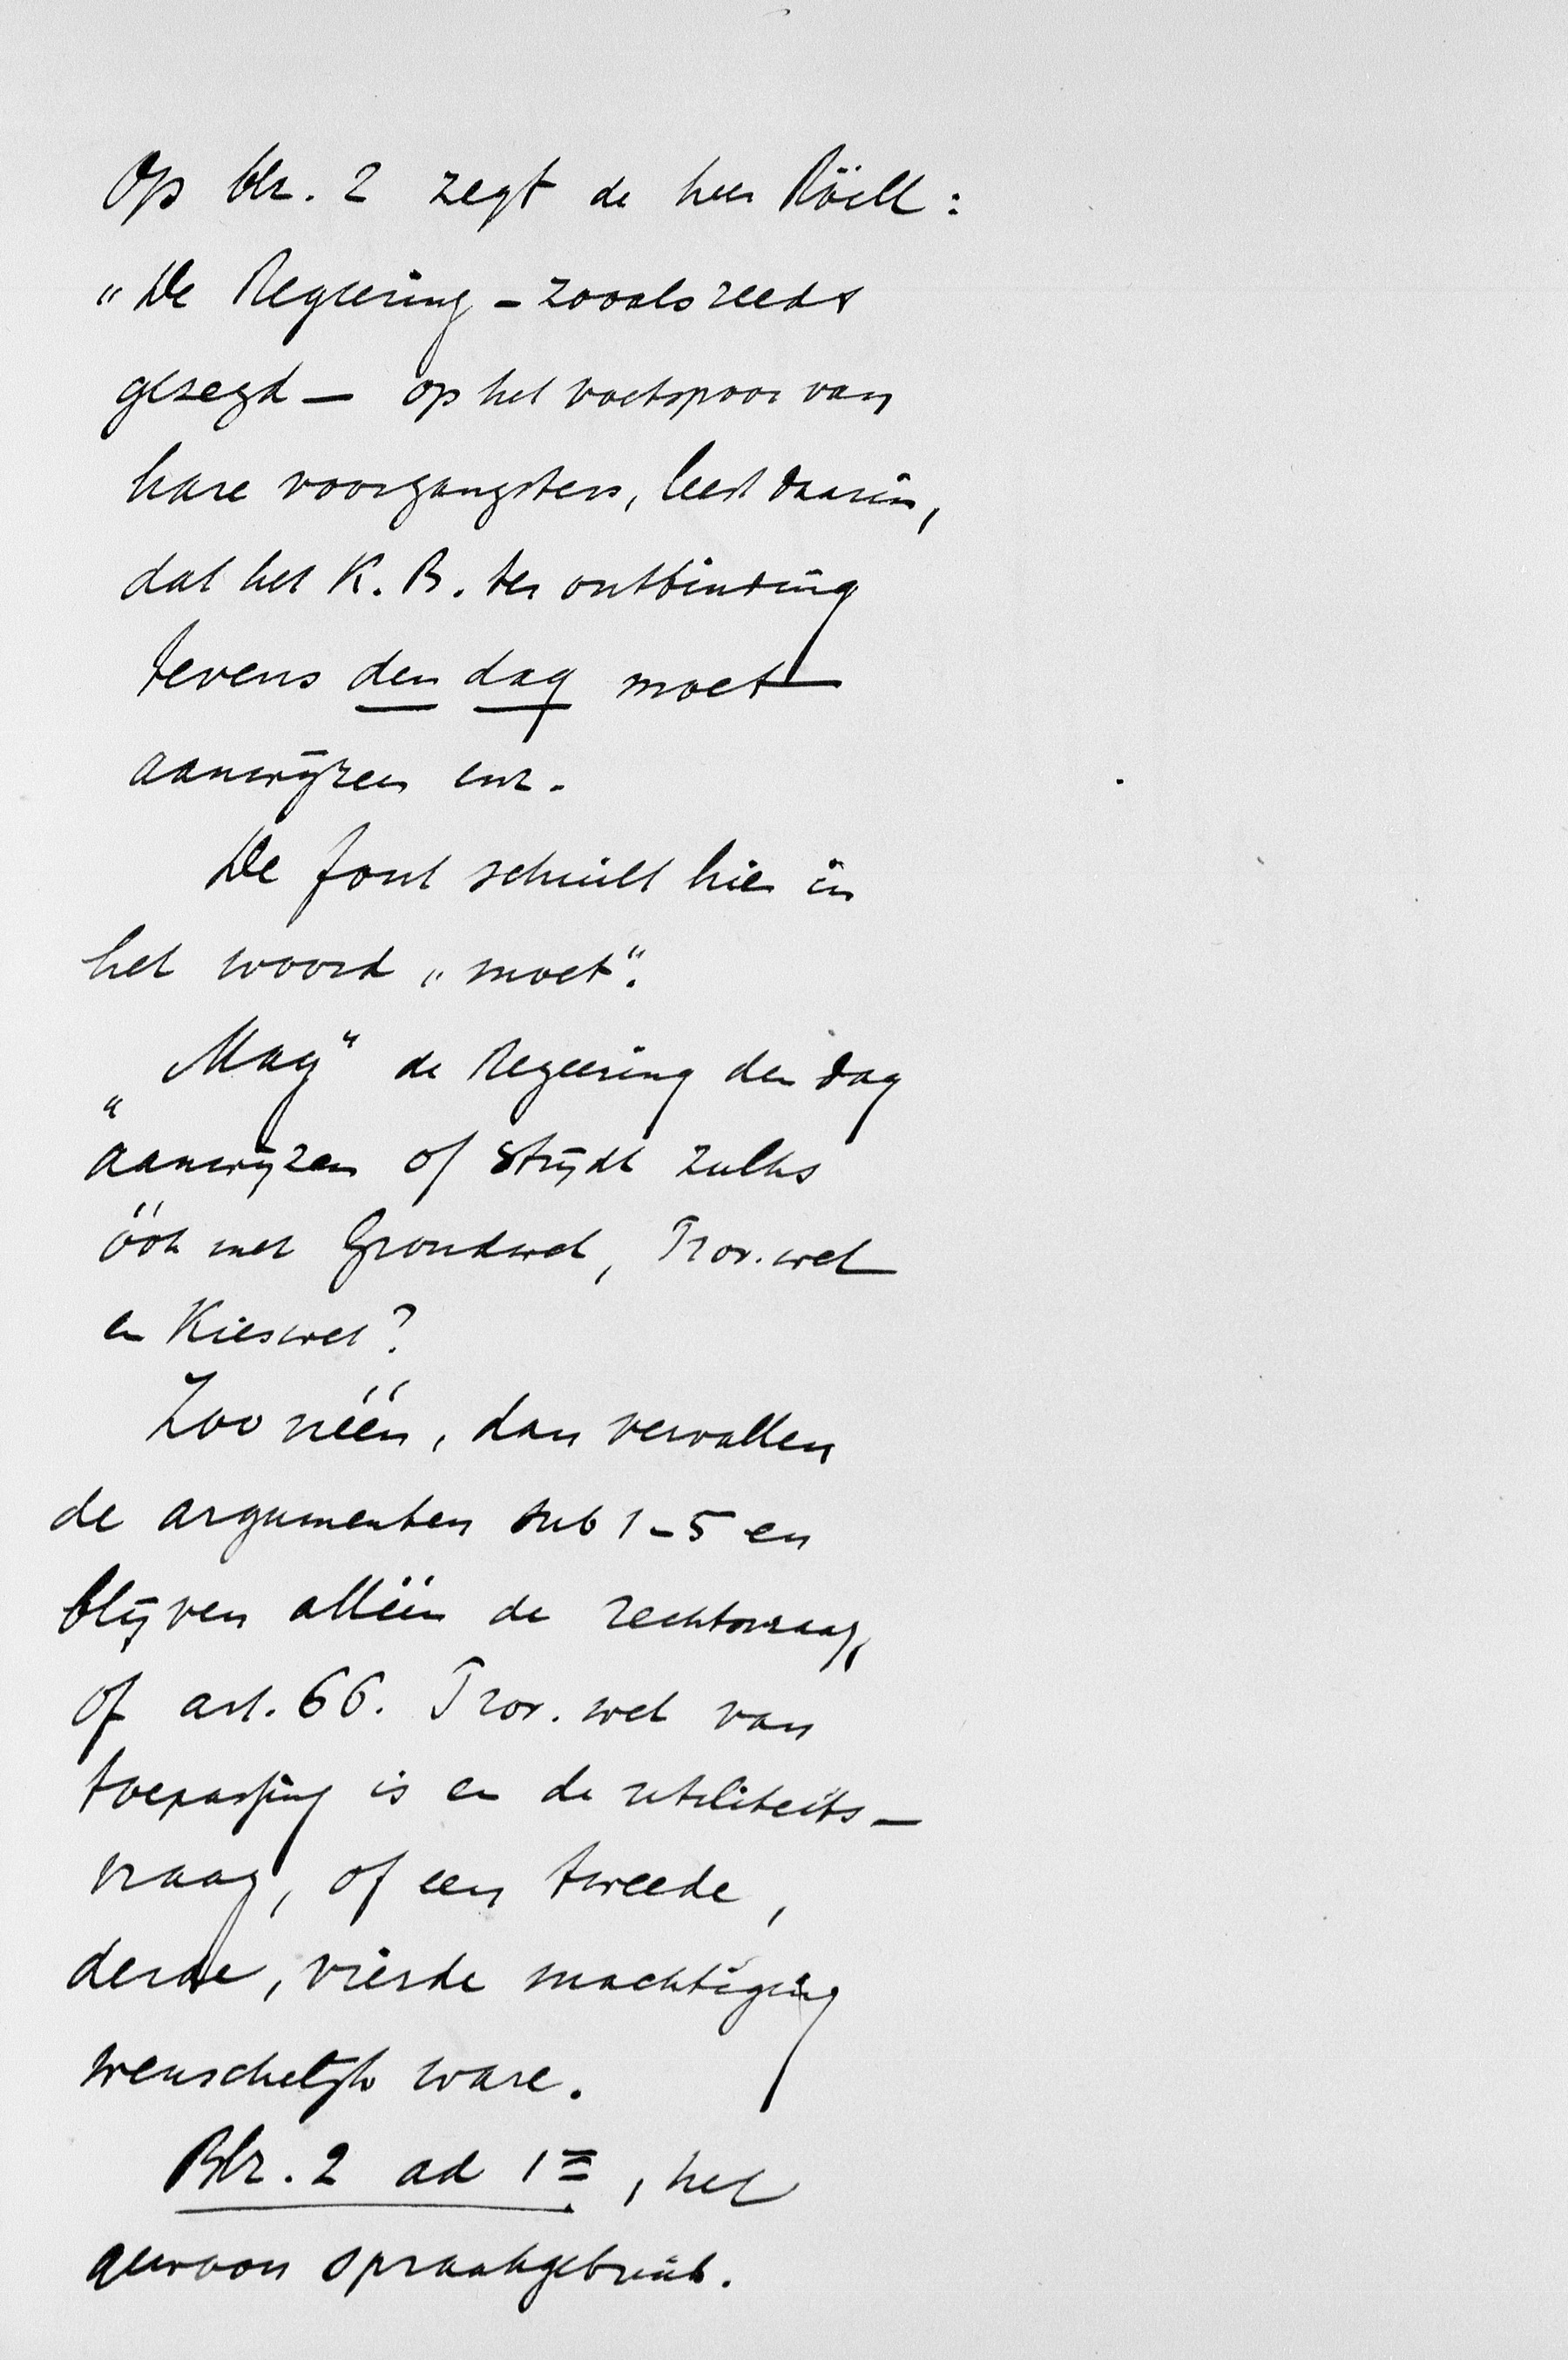 Op blz. 2 zegt de heer Röell:
„De Regeering - zooals reeds
gezegd - op het voetspoor van
hare voorgangsters, leest daarin,
dat het K. B. ter ontbinding
tevens den dag moet
aanwijzen enz.
De fout schuilt hier in
het woord „moet".
„Mag" de Regeering den dag
aanwijzen of strijdt zulks
óók met Grondwet, Prov. wet
en Kieswet?
Zoo néén, dan vervallen
de argumenten sub 1-5 en
blijven alléén de rechtsvraag,
of art. 66. Prov. wet van
toepassing is en de utiliteits-
vraag, of een tweede,
derde, vierde machtiging
wenschelijk ware.
Blz. 2 ad 1=, het
gewoon spraakgebruik.